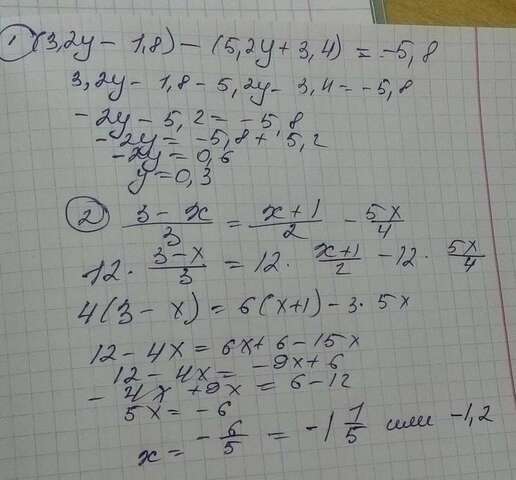 1 (3,2y - 1,8) - (5,2y + 3,4) = -5,8
3,2y - 1,8 - 5,2y - 3,4 = -5,8
-2y - 5,2 = -5,8
-2y = -5,8 + 5,2
-2y = 0,6
y = 0,3
2 (3 - x)/3 = (x + 1)/2 - 5x/4
12 · (3 - x)/3 = 12 · (x+1)/2 - 12 · 5x/4
4(3 - x) = 6(x+1) - 3 · 5x
12 - 4x = 6x + 6 - 15x
12 - 4x = -9x + 6
-4x + 9x = 6 - 12
5x = -6
x = -6/5 = -1 1/5 или -1,2